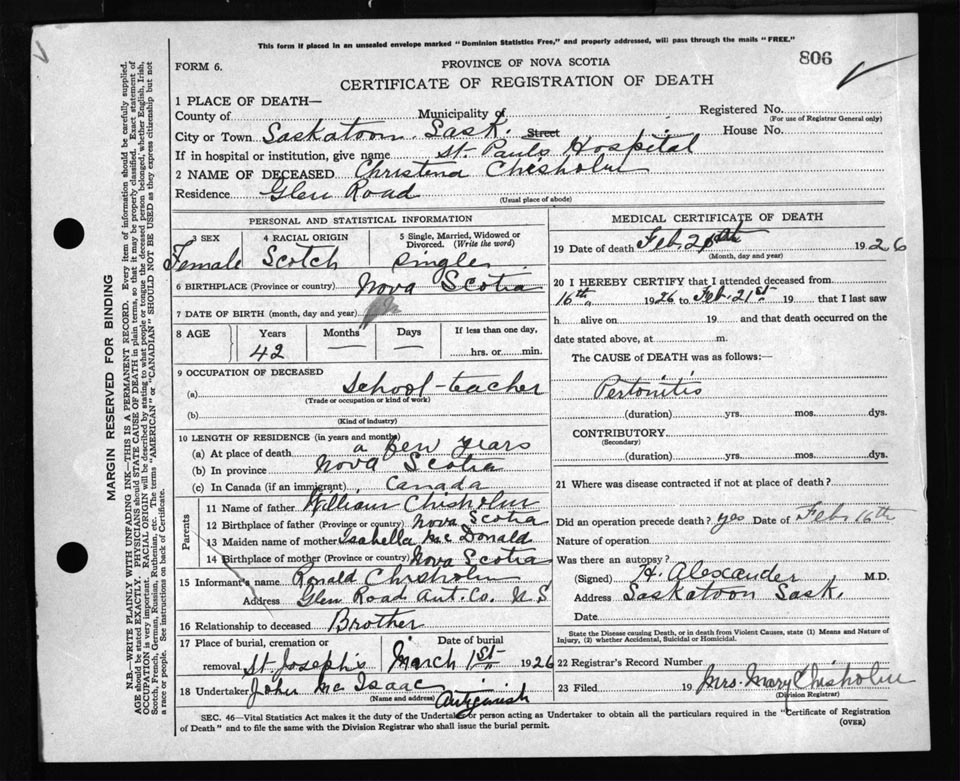 This form if placed in an unsealed envelope marked "Dominion Statistics Free," and properly addressed, will pass through the mails "FREE."
FORM 6.
PROVINCE OF NOVA SCOTIA
806
CERTIFICATE OF REGISTRATION OF DEATH
MARGIN RESERVED FOR BINDING
N.B.—WRITE PLAINLY WITH UNFADING INK—THIS IS A PERMANENT RECORD. Every item of information should be carefully supplied.
AGE should be stated EXACTLY. PHYSICIANS should STATE CAUSE OF DEATH in plain terms, so that it may be properly classified. Exact statement of
OCCUPATION is very important. RACIAL ORIGIN will be described by stating to what people or tongue the deceased person belonged, whether English, Irish,
Scotch, French, German, Russian, Ruthenian, etc. The terms "AMERICAN" or "CANADIAN" SHOULD NOT BE USED as they express citizenship but not
a race or people. See instructions on back of Certificate.
1 PLACE OF DEATH—
County of Municipality of Registered No.
(For use of Registrar General only)
City or Town Saskatoon Sask. Street House No.
If in hospital or institution, give name St. Pauls Hospital
2 NAME OF DECEASED Christena Chisholm
Residence Glen Road
(Usual place of abode)
PERSONAL AND STATISTICAL INFORMATION
3 SEX 4 RACIAL ORIGIN 5 Single, Married, Widowed or Divorced. (Write the word)
Female Scotch single
6 BIRTHPLACE (Province or country) Nova Scotia
7 DATE OF BIRTH (month, day and year)
8 AGE Years Months Days If less than one day,
42 — — hrs. or min.
9 OCCUPATION OF DECEASED
(a) School-teacher
(Trade or occupation or kind of work)
(b)
(Kind of industry)
10 LENGTH OF RESIDENCE (in years and months)
(a) At place of death a few years
(b) In province Nova Scotia
(c) In Canada (if an immigrant) Canada
Parents
11 Name of father William Chisholm
12 Birthplace of father (Province or country) Nova Scotia
13 Maiden name of mother Isabella McDonald
14 Birthplace of mother (Province or country) Nova Scotia
15 Informant's name Ronald Chisholm
Address Glen Road Ant. Co. N S
16 Relationship to deceased Brother
17 Place of burial, cremation or Date of burial
removal St Joseph's March 1st 1926
18 Undertaker John McIsaac
(Name and address) Antigonish
MEDICAL CERTIFICATE OF DEATH
19 Date of death Feb 1926
(Month, day and year)
20 I HEREBY CERTIFY that I attended deceased from
16th 1926 to Feb. 21st 19 that I last saw
h alive on 19 and that death occurred on the
date stated above, at m.
The CAUSE of DEATH was as follows:—
Pertonitis
(duration) yrs. mos. dys.
CONTRIBUTORY
(Secondary)
(duration) yrs. mos. dys.
21 Where was disease contracted if not at place of death?
Did an operation precede death? yes Date of Feb 16th
Nature of operation
Was there an autopsy?
(Signed) H. Alexander M.D.
Address Saskatoon Sask.
Date
State the Disease causing Death, or in death from Violent Causes, state (1) Means and Nature of
Injury, (2) whether Accidental, Suicidal or Homicidal.
22 Registrar's Record Number
23 Filed 19 Mrs. Mary Chisholm
(Division Registrar)
SEC. 46—Vital Statistics Act makes it the duty of the Undertaker or person acting as Undertaker to obtain all the particulars required in the "Certificate of Registration
of Death" and to file the same with the Division Registrar who shall issue the burial permit.
(OVER)